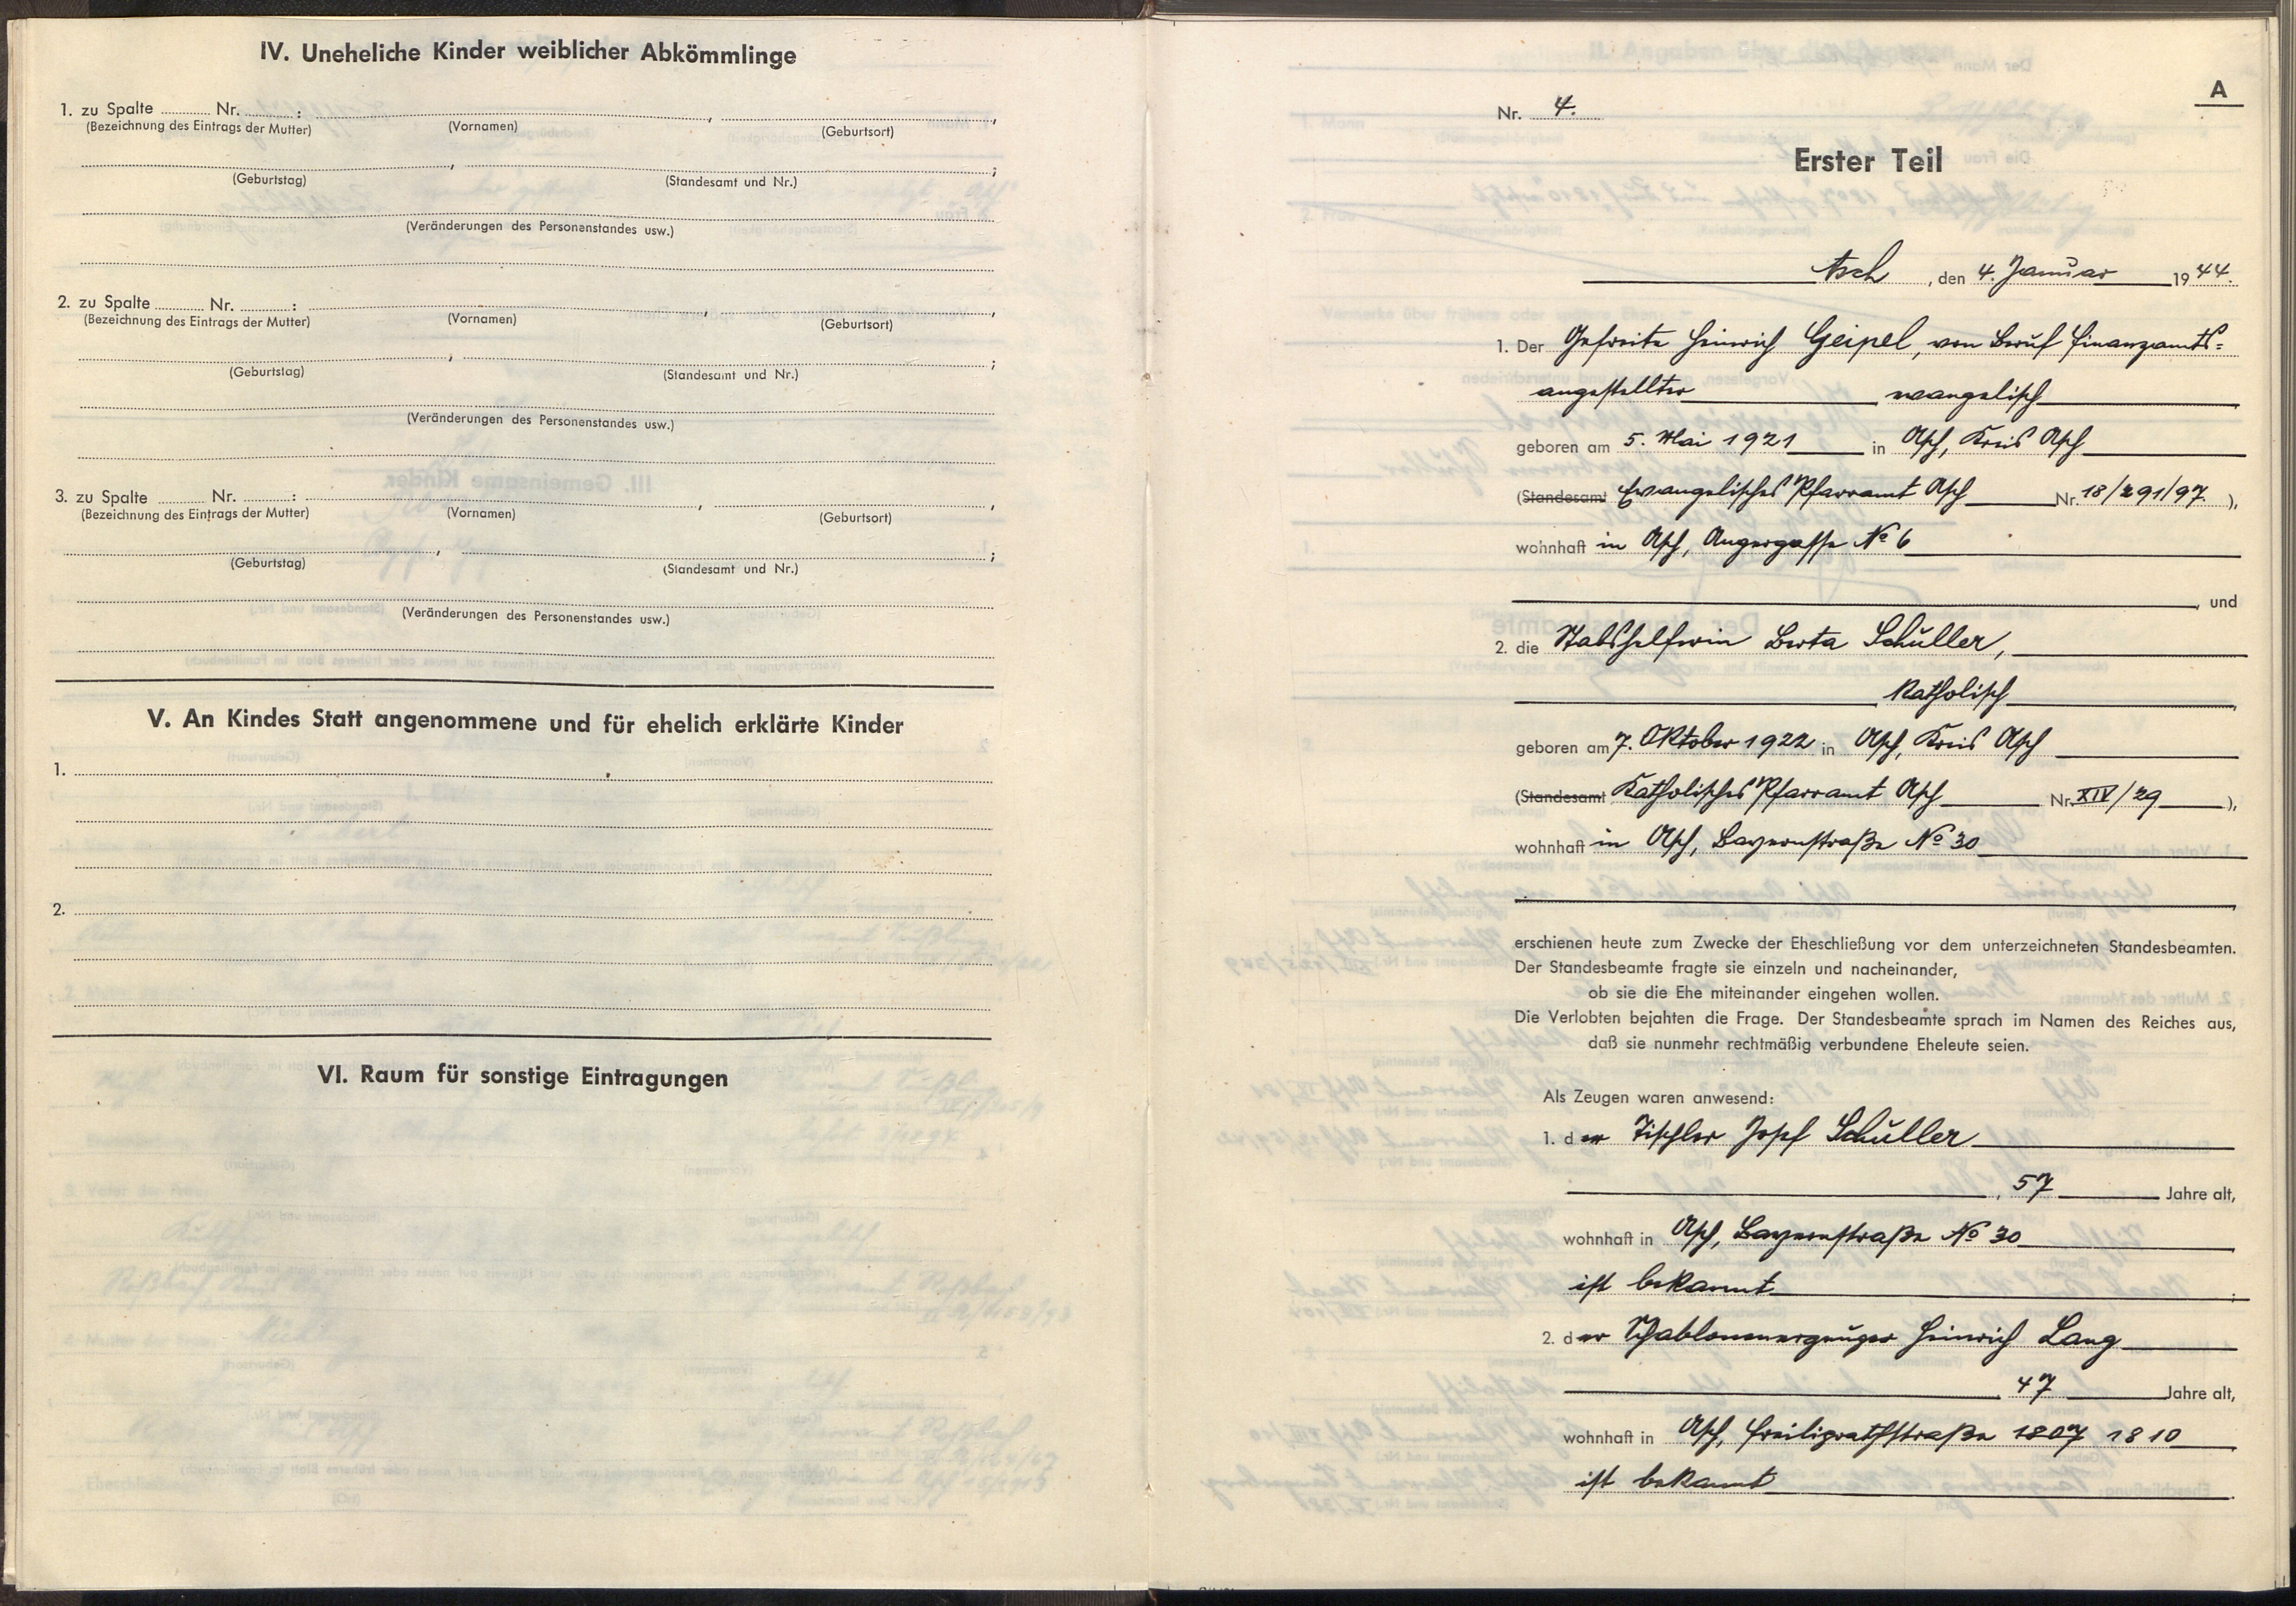 IV. Uneheliche Kinder weiblicher Abkömmlinge
1. zu Spalte ........ Nr. ........ :
(Bezeichnung des Eintrags der Mutter) (Vornamen) (Geburtsort)
(Geburtstag) (Standesamt und Nr.)
(Veränderungen des Personenstandes usw.)
2. zu Spalte ........ Nr. ........ :
(Bezeichnung des Eintrags der Mutter) (Vornamen) (Geburtsort)
(Geburtstag) (Standesamt und Nr.)
(Veränderungen des Personenstandes usw.)
3. zu Spalte ........ Nr. ........ :
(Bezeichnung des Eintrags der Mutter) (Vornamen) (Geburtsort)
(Geburtstag) (Standesamt und Nr.)
(Veränderungen des Personenstandes usw.)
V. An Kindes Statt angenommene und für ehelich erklärte Kinder
1.
2.
VI. Raum für sonstige Eintragungen
A
Nr. 4.
Erster Teil
Asch, den 4. Januar 1944.
1. Der Gefreite Heinrich Geipel, von Beruf Finanzamts=
angestellter evangelisch,
geboren am 5. Mai 1921 in Asch, Kreis Asch
(Standesamt Evangelisches Pfarramt Asch Nr. 18/291/97.),
wohnhaft in Asch, Angergasse No 6
, und
2. die Stabshelferin Berta Schuller,
Katholisch,
geboren am 7. Oktober 1922 in Asch, Kreis Asch
(Standesamt Katholisches Pfarramt Asch Nr. XIV/29),
wohnhaft in Asch, Bayernstraße No 30
erschienen heute zum Zwecke der Eheschließung vor dem unterzeichneten Standesbeamten.
Der Standesbeamte fragte sie einzeln und nacheinander,
ob sie die Ehe miteinander eingehen wollen.
Die Verlobten bejahten die Frage. Der Standesbeamte sprach im Namen des Reiches aus,
daß sie nunmehr rechtmäßig verbundene Eheleute seien.
Als Zeugen waren anwesend:
1. der Tischler Josef Schuller
, 57 Jahre alt,
wohnhaft in Asch, Bayernstraße No 30
ist bekannt ;
2. der Schablonenerzeuger Heinrich Lang
, 47 Jahre alt,
wohnhaft in Asch, Freiligrathstraße 1807 1810
ist bekannt